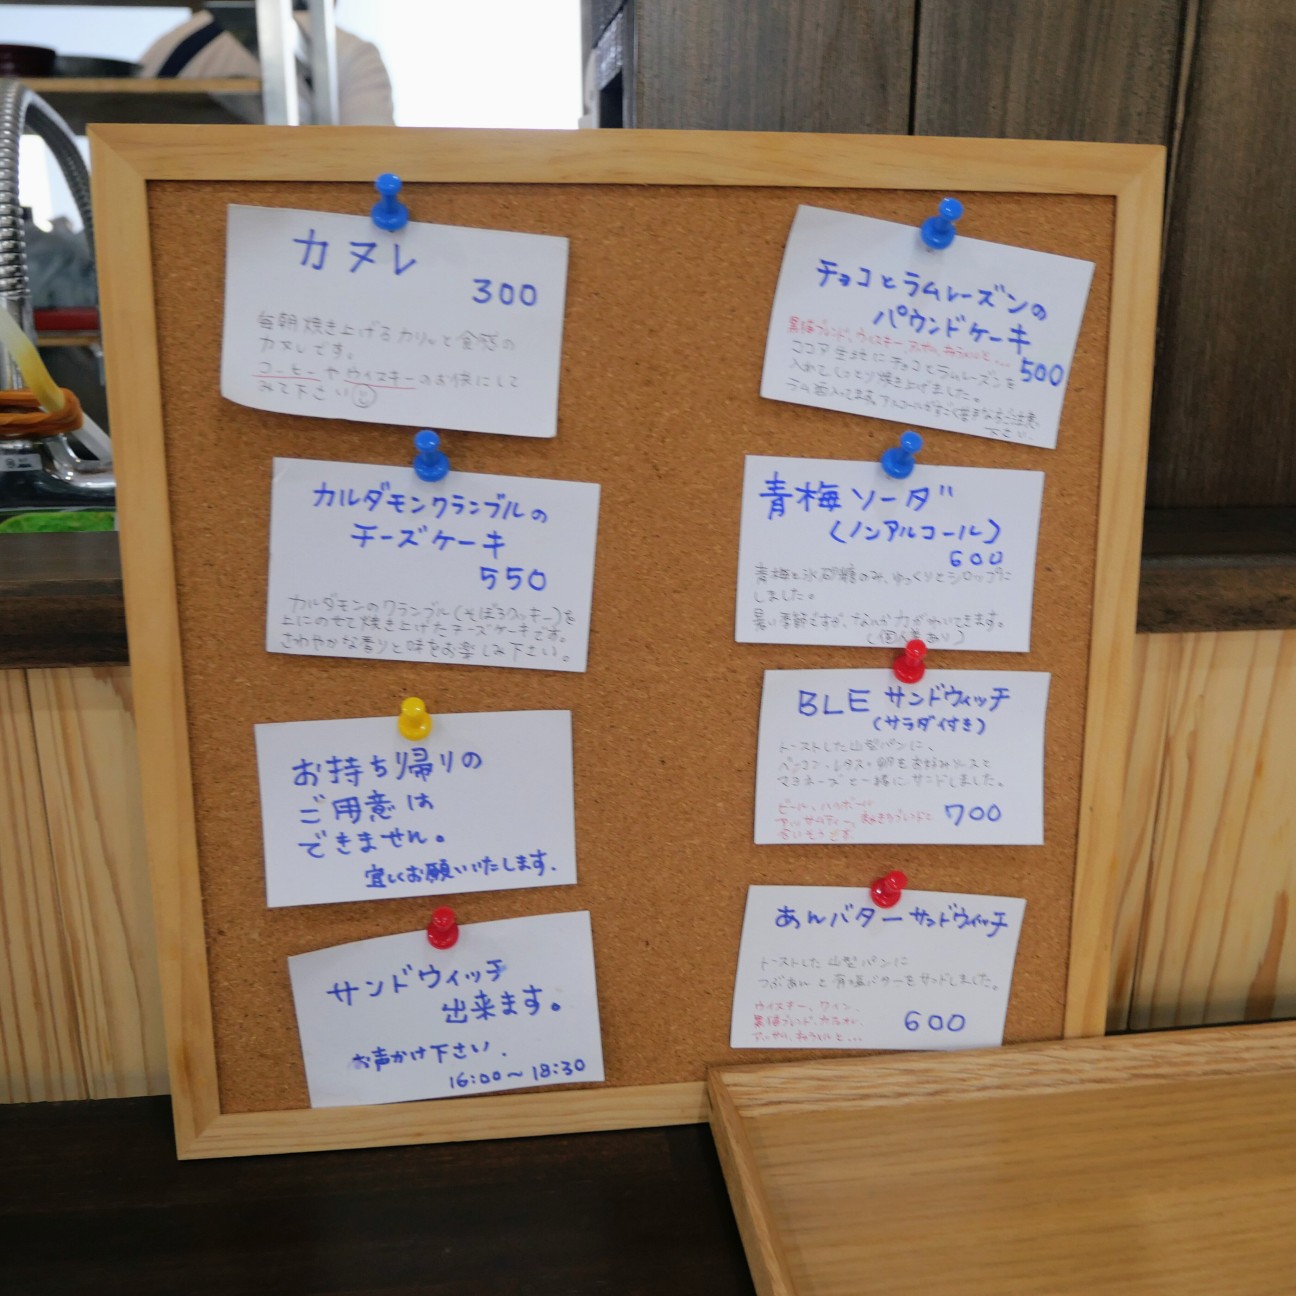 カヌレ
300
毎朝焼き上げるカリッと食感の
カヌレです。
コーヒーやウィスキーのお供にして
みて下さい
カルダモンクランブルの
チーズケーキ
550
カルダモンのクランブル(そぼろクッキー)を
上にのせて焼き上げたチーズケーキです。
さわやかな香りと味をお楽しみ下さい。
お持ち帰りの
ご用意は
できません。
宜しくお願いいたします.
サンドウィッチ
出来ます。
お声かけ下さい.
16:00〜18:30
チョコとラムレーズンの
パウンドケーキ
黒猫ブレンド、ウィスキー、アッサム、キャラメルと...
500
ココア生地にチョコとラムレーズンを
入れてしっとり焼き上げました。
ラム酒入ってます。アルコールがすごく苦手な方ご注意
下さい
青梅ソーダ
(ノンアルコール)
600
青梅と氷砂糖のみ、ゆっくりとシロップに
しました。
暑い季節ですが、なんか力がわいてきます。
(個人差あり)
BLE サンドウィッチ
(サラダ付き)
トーストした山型パンに、
ベーコン・レタス・卵をお好みソースと
マヨネーズと一緒にサンドしました。
ビール、ハイボール
アッサムティー、
700
合いそうです
あんバターサンドウィッチ
トーストした山型パンに
つぶあんと有塩バターをサンドしました。
ウイスキー、ワイン
黒猫ブレンド、カフェオレ
600